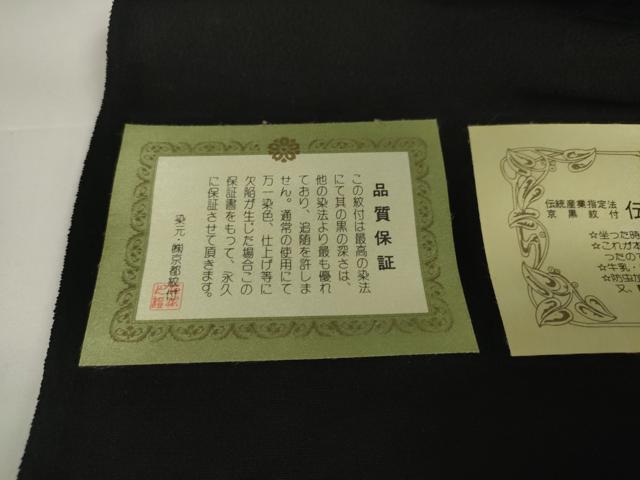 品質保証
この紋付は最高の染法
にて其の黒の深さは、
他の染法より最も優れ
ており、追随を許しま
せん。通常の使用にて
万一染色、仕上げ等に
欠陥が生じた場合この
保証書をもって、永久
に保証させて頂きます。
染元・㈱京都紋付
伝統産業指定法
京黒紋付
伝
☆坐った時
☆これが本
つたので
☆牛乳・
☆防虫加
又、